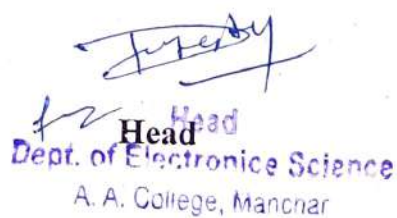 Head
Head
Dept. of Electronice Science
A. A. College, Manchar